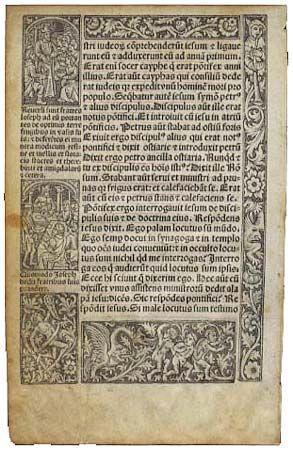 stri iudeoꝝ cõprehenderũt iesum ⁊ ligaue
runt eũ ⁊ adduxerunt eũ ad annã primum.
Erat eni socer cayphe q̃ erat põtifex anni
illius. Erat aũt cayphas qui consiliũ dede
rat iudeis qꝛ expedit vnũ hominẽ mori pro
populo. Seq̃bat̃ aũt iesum symõ petrꝰ
⁊ alius discipulus. Discipulus aũt ille erat
notus põtifici. Et introiuit cũ iesu in atriũ
põtificis. Petrus aũt stabat ad ostiũ foris
Exiuit ergo discipulꝰ alius qui erat notꝰ
põtifici ⁊ dixit ostiarie ⁊ introduxit petrũ
Dixit ergo petro ancilla ostiaria. Nunqd ⁊
tu ex discipulis es hoĩs istiꝰ? Dixit ille Nõ
sum. Stabant aũt serui et ministri ad pru
nas qꝛ frigus erat: et calefaciebãt se. Erat
aũt cũ eis ⁊ petrus stans ⁊ calefaciens se.
Põtifex ergo interrogauit iesum de discipu
lis suis ⁊ de doctrina eius. Respõdens
iesus dixit. Ego palam locutus sũ mũdo.
Ego semp docui in synagoga ⁊ in templo
quo oẽs iudei conueniũt: et in occulto locu
tus sum nichil qd me interrogas? Interro
ga eos q̃ audierũt quid locutus sum ipsis.
Ecce hi sciũt q̃ dixerim ego. Hec aũt cũ
dixisset vnus assistens ministroꝝ dedit ala
pã iesu: dicẽs. Sic respõdes pontifici? Re
spõdit iesus. Si male locutus sum testimo
Reuersi sunt fratres
Joseph ad eũ portan
tes de optimis terre
frugibus in vasis su
is: ⁊ deferẽtes ei mu
nera modicum resi
ne et mellis et sto
racis stactes et there
binti et amigdalarũ
et cetera.
Quomodo Joseph
dedit fratribus suis
prandiũ.